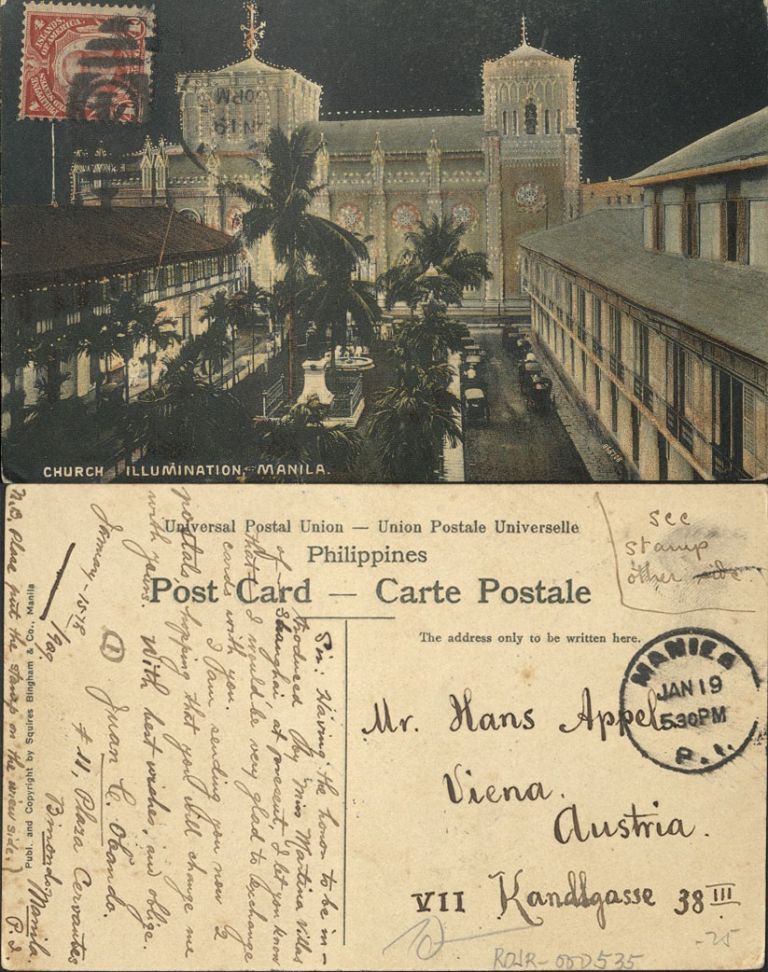 ISLANDS
OF AMERICA
UNITED STATES
PHILIPPINE
30PM
JAN 19
CHURCH ILLUMINATION, MANILA.
Universal Postal Union — Union Postale Universelle
Philippines
Post Card — Carte Postale
The address only to be written here.
see
stamp
other side
MANILA
JAN 19
530PM
P.I.
Mr. Hans Appel
Viena.
Austria.
VII Kandlgasse 38 III
-25
Sir: Having the honor to be in-
troduced by Miss Martina Villas
of Shanghai, at present, I let you know
that I would be very glad to exchange
cards with you.
I am sending you now 2
postals, hopping that you will change me
with yours. With best wishes, and oblige.
Juan C. Obando.
# 11, Plaza Cervantes
Binondo, Manila.
P.I.
January-15-18
1909
1
Publ. and Copyright by Squires Bingham & Co., Manila
N.B. Please put the stamp on the view side.)